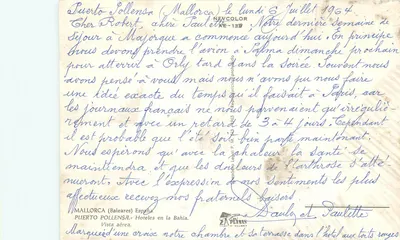 Puerto Pollensa (Mallorca) le lundi 6 juillet 1964
Cher Robert, chère Paulette, Notre dernière semaine de
séjour à Majorque a commencé aujourd'hui. En principe
nous devons prendre l'avion à Palma dimanche prochain
pour atterrir à Orly tard dans la soirée. Souvent nous
avons pensé à vous mais nous n'avons pu nous faire
une idée exacte du temps qu'il faisait à Paris, car
les journaux français ne nous parvenaient qu'irréguliè-
rement et avec un retard de 3 à 4 jours. Cependant
il est probable que l'été soit bien parti maintenant.
Nous espérons qu'avec la chaleur la santé se
maintiendra et que les douleurs de l'arthrose s'atté-
nueront. Avec l'expression de nos sentiments les plus
affectueux recevez nos fraternels baisers.
MALLORCA (Baleares) España
PUERTO POLLENSA: Hoteles en la Bahía.
Vista aérea
et Paulette
Marquée d'une croix notre chambre et sa terrasse dans l'hôtel aux toits rouges